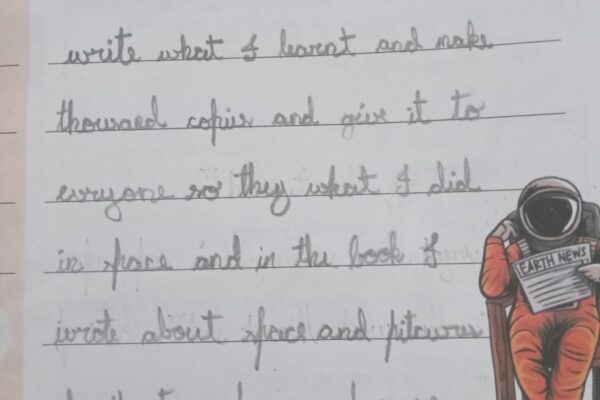 write what I learnt and make
thousaed copies and give it to
everyone so they what I did
in space and in the book I
wrote about space and pitcurus
EARTH NEWS